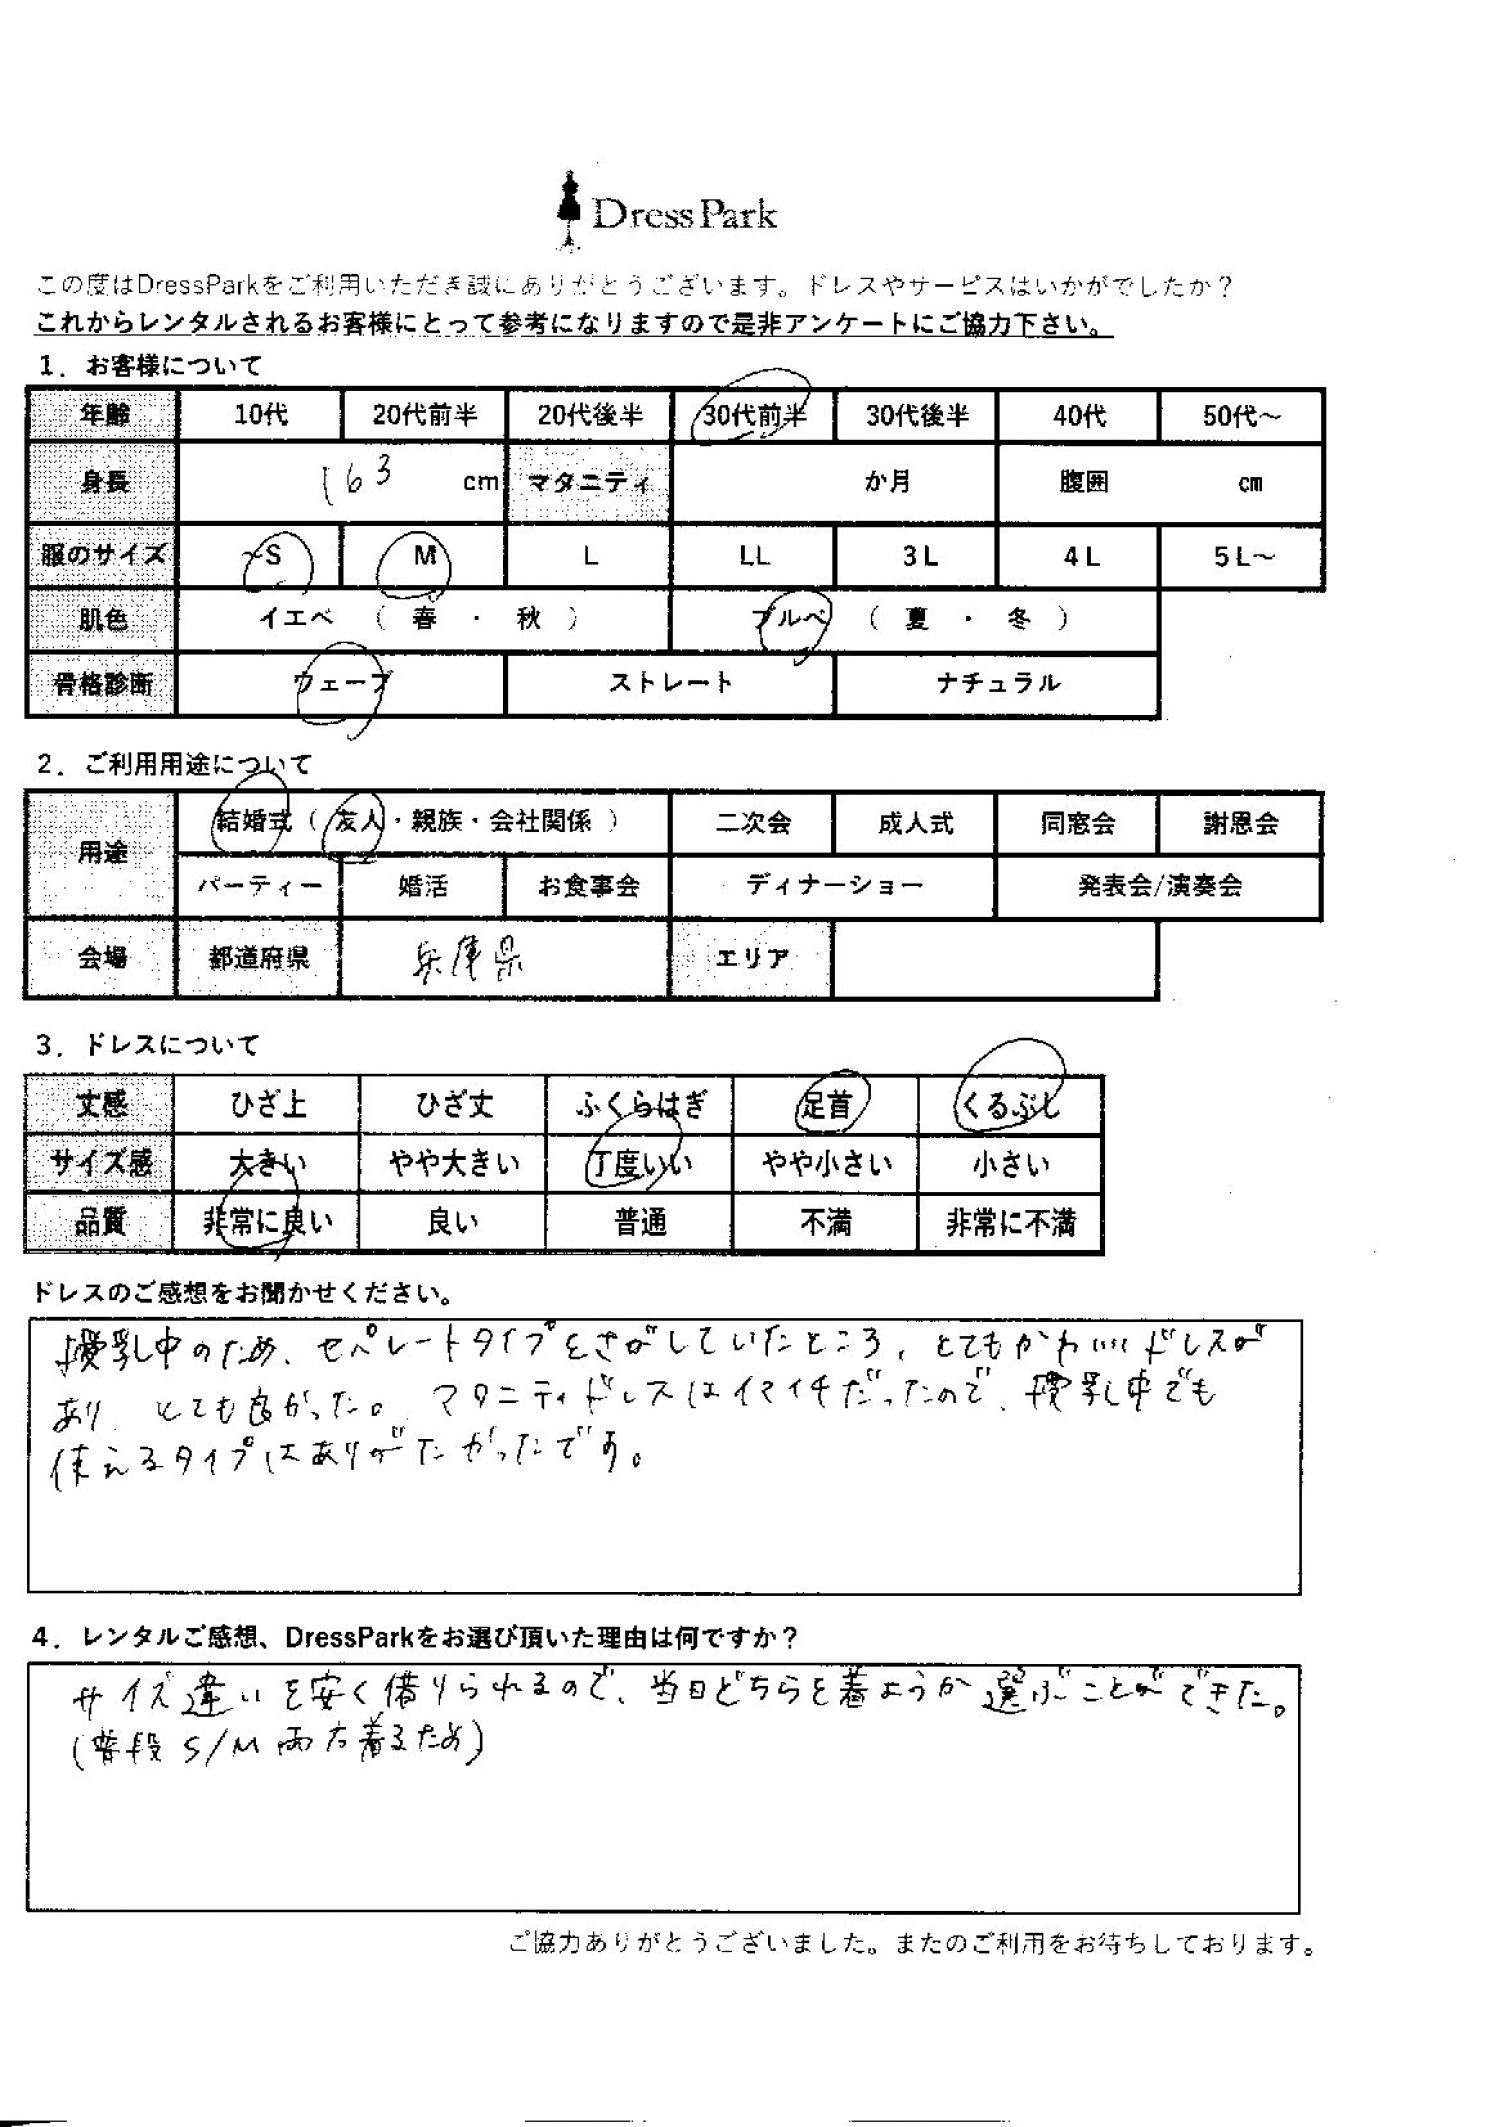 Dress Park
この度はDressParkをご利用いただき誠にありがとうございます。ドレスやサービスはいかがでしたか？
これからレンタルされるお客様にとって参考になりますので是非アンケートにご協力下さい。
1．お客様について
年齢 10代 20代前半 20代後半 30代前半 30代後半 40代 50代～
身長 163 cm マタニティ か月 腹囲 cm
服のサイズ ~S M L LL 3L 4L 5L～
肌色 イエベ （ 春 ・ 秋 ） ブルベ （ 夏 ・ 冬 ）
骨格診断 ウェーブ ストレート ナチュラル
2．ご利用用途について
用途 結婚式（ 友人・親族・会社関係 ） 二次会 成人式 同窓会 謝恩会
パーティー 婚活 お食事会 ディナーショー 発表会/演奏会
会場 都道府県 兵庫県 エリア
3．ドレスについて
丈感 ひざ上 ひざ丈 ふくらはぎ 足首 くるぶし
サイズ感 大きい やや大きい 丁度いい やや小さい 小さい
品質 非常に良い 良い 普通 不満 非常に不満
ドレスのご感想をお聞かせください。
授乳中のため、セパレートタイプをさがしていたところ、とてもかわいいドレスが
あり、とても良かった。マタニティドレスはイマイチだったので、授乳中でも
使えるタイプはありがたかったです。
4．レンタルご感想、DressParkをお選び頂いた理由は何ですか？
サイズ違いを安く借りられるので、当日どちらを着ようか選ぶことができた。
(普段 S/M 両方着るため)
ご協力ありがとうございました。またのご利用をお待ちしております。